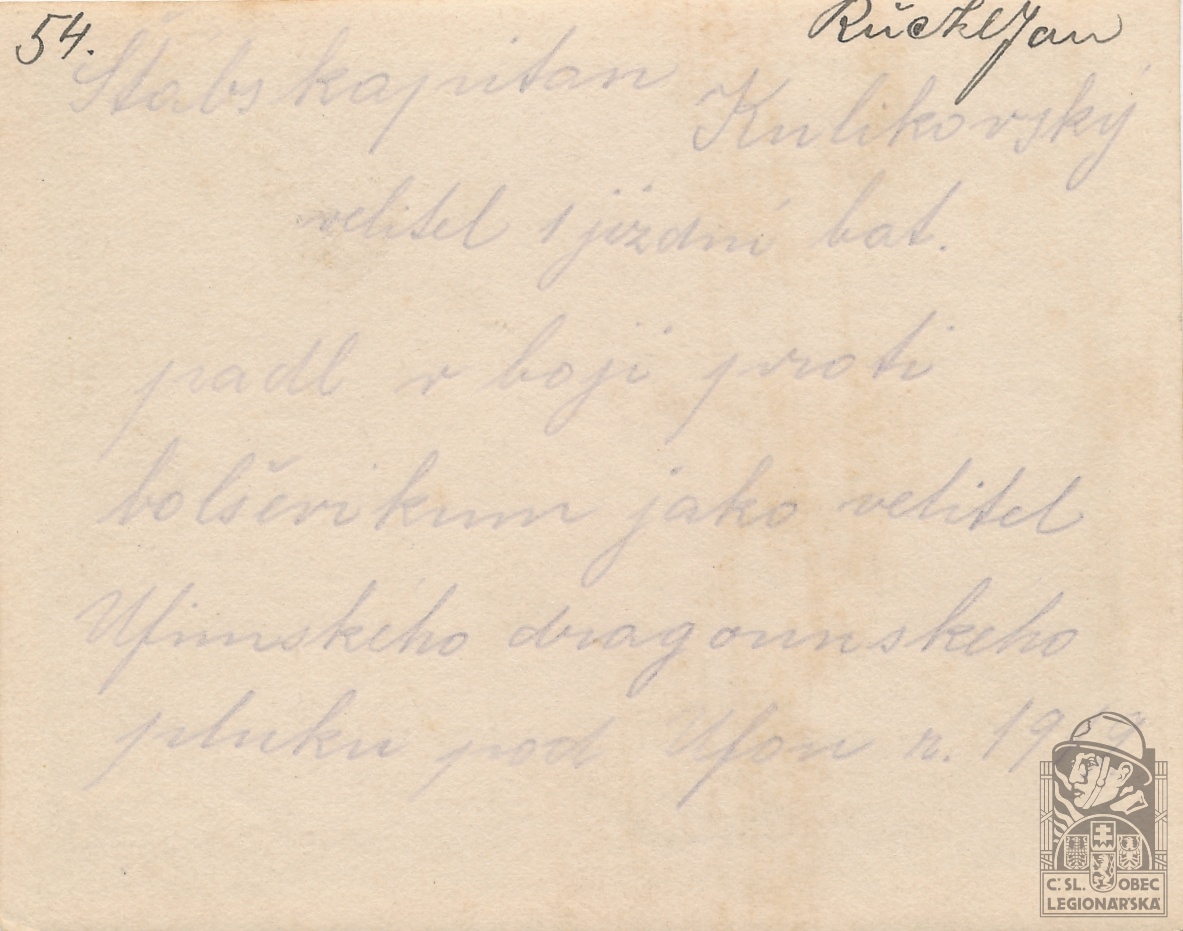 54.
Rückl Jan
Štabskapitan Kulikovský
velitel 1 jízdní bat.
padl v boji proti
bolševikum jako velitel
Ufimského dragounskeho
pluku pod Ufou r.
C.SL. OBEC
LEGIONÁŘSKÁ